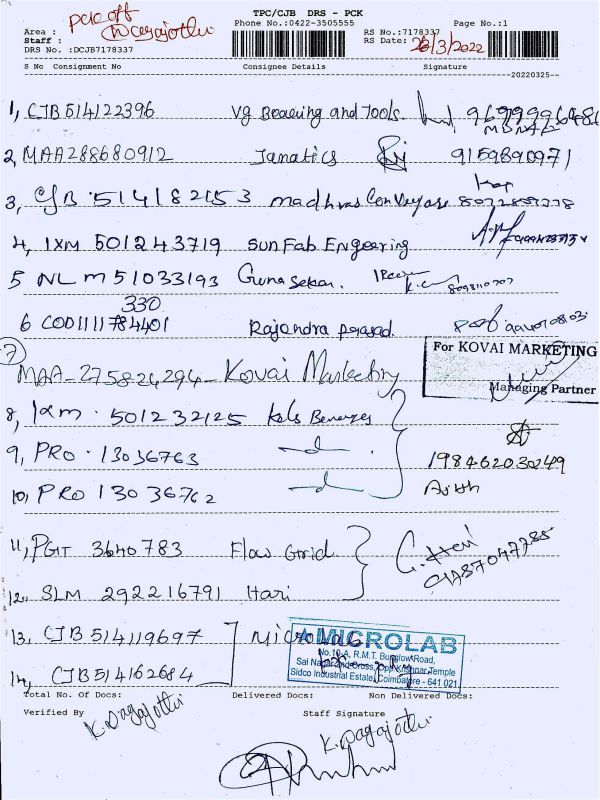 TPC/CJB DRS - PCK
Area : pck off
Phone No.:0422-3505555
Page No.:1
Staff :
RS No.:7178337
DRS No. :DCJB7178337
RS Date: 26/3/2022
S No Consignment No Consignee Details Signature
20220325--
1, CJB 514122396 Vg Bearing and Tools.
2, MAA288680912 Janatics 9159890971
3, CJB . 514182153 madhras Conveyase
4, IXM 501243719 Sun Fab Engeering
5 NLM 51033193 Guna Sekar.
330
6 COD1111784401 Rajendra prasad
For KOVAI MARKETING
Managing Partner
7 MAA-275824294- Kovai Marketing
8, IXM . 501232125
9, PRO . 13036763
198462030249
10, PRO 13036762
11, PGIT 3640783 Flow Grid
12, SLM 292216791 Hari
G. Hari
13, CJB 514119697 MICROLAB
14, CJB 514162684
MICROLAB
No.10-A, R.M.T. Bunglow Road,
Sai Nagar 2nd Cross, Opp. Krishnar Temple
Sidco Industrial Estate, Coimbatore - 641 021
Total No. Of Docs: Delivered Docs: Non Delivered Docs:
Verified By K. Nagajothi Staff Signature
K. Nagajothi